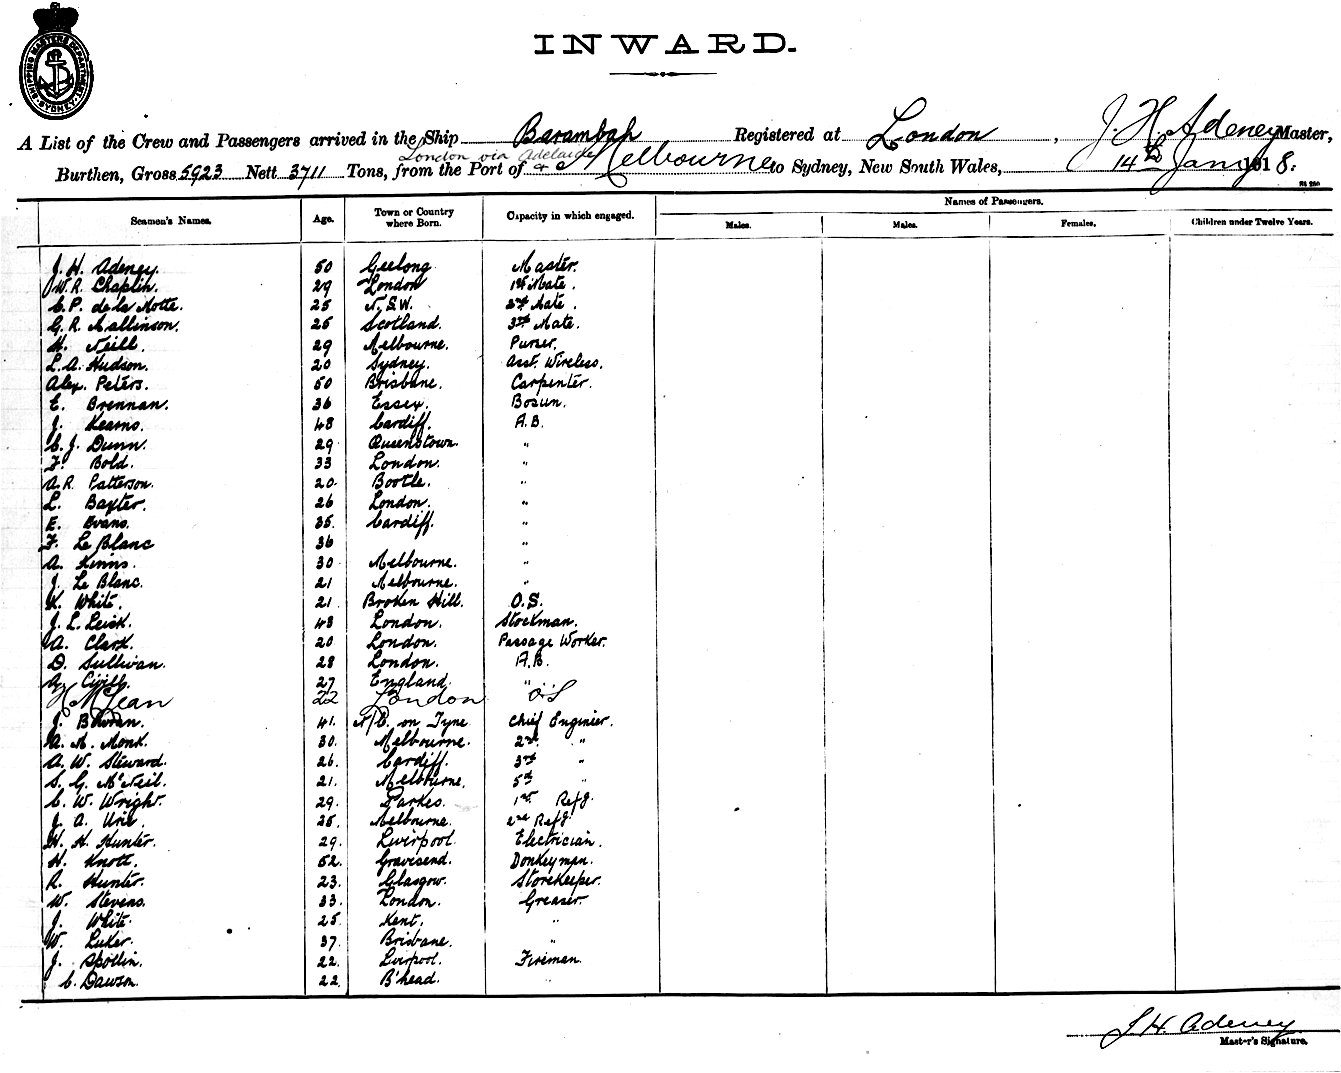 SHIPPING MASTERS DEPARTMENT SYDNEY
INWARD.
A List of the Crew and Passengers arrived in the Ship Barambah Registered at London, J. H. Adeney Master,
London via Adelaide
Burthen, Gross 5923 Nett 3711 Tons, from the Port of & Melbourne to Sydney, New South Wales, 14th Jany 1918.
Seamen's Names. Age. Town or Country where Born. Capacity in which engaged. Names of Passengers.
Males. Males. Females. Children under Twelve Years.
J. H. Adeney. 50 Geelong Master.
W. R. Chaplin. 29 London 1st Mate.
C. P. de la Motte. 25 N.S.W. 2nd Mate.
G. R. Mallinson. 25 Scotland. 3rd Mate.
H. Neill. 29 Melbourne. Purser.
L. A. Hudson. 20 Sydney. Asst. Wireless.
Alex. Peters. 50 Brisbane. Carpenter.
E. Brennan. 36 Essex. Bosun.
J. Kearns. 48 Cardiff. A.B.
C. J. Dunn. 29 Queenstown. "
F. Bold. 33 London. "
A. R. Patterson. 20 Bootle. "
L. Baxter. 26 London. "
E. Evans. 35. Cardiff. "
F. Le Blanc 36 "
A. Kinns. 30 Melbourne. "
J. Le Blanc. 21 Melbourne. "
K. White. 21 Broken Hill. O.S.
J. L. Leisk. 43 London. Stockman.
A. Clark. 20 London. Passage Worker.
D. Sullivan. 28 London. A.B.
A. 27 England. "
H McLean 22 London O.S
J. 41. N/C. on Tyne Chief Enginier.
A. M. Monk. 30. Melbourne. 2nd "
A. W. Steward. 26. Cardiff. 3rd "
S. G. McNeil. 21. Melbourne. 5th "
C. W. Wright. 29. Parkes. 1st Refg.
J. A. Urie. 35. Melbourne. 2nd Refg.
H. H. Hunter. 29. Liverpool. Electrician.
H. Knott. 52. Gravisend. Donkeyman.
R. Hunter. 23. Glasgow. Storekeeper.
W. Stevens. 33. London. Greaser.
J. White. 25. Kent. "
W. Luker. 37. Brisbane. "
J. Spollin. 22. Liverpool. Fireman.
C. Dawson. 22. B'head. "
J. H. Adeney
Master's Signature.